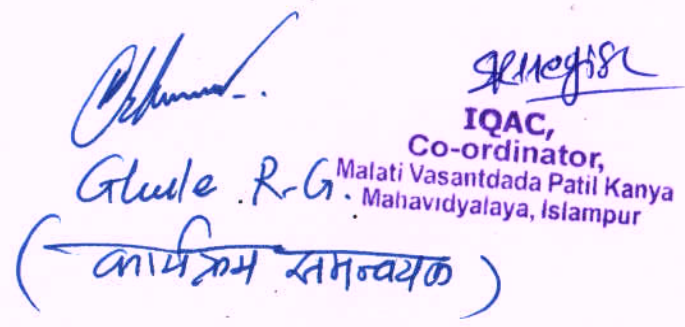 Ghule R.G.
(कार्यक्रम समन्वयक)
IQAC,
Co-ordinator,
Malati Vasantdada Patil Kanya
Mahavidyalaya, Islampur